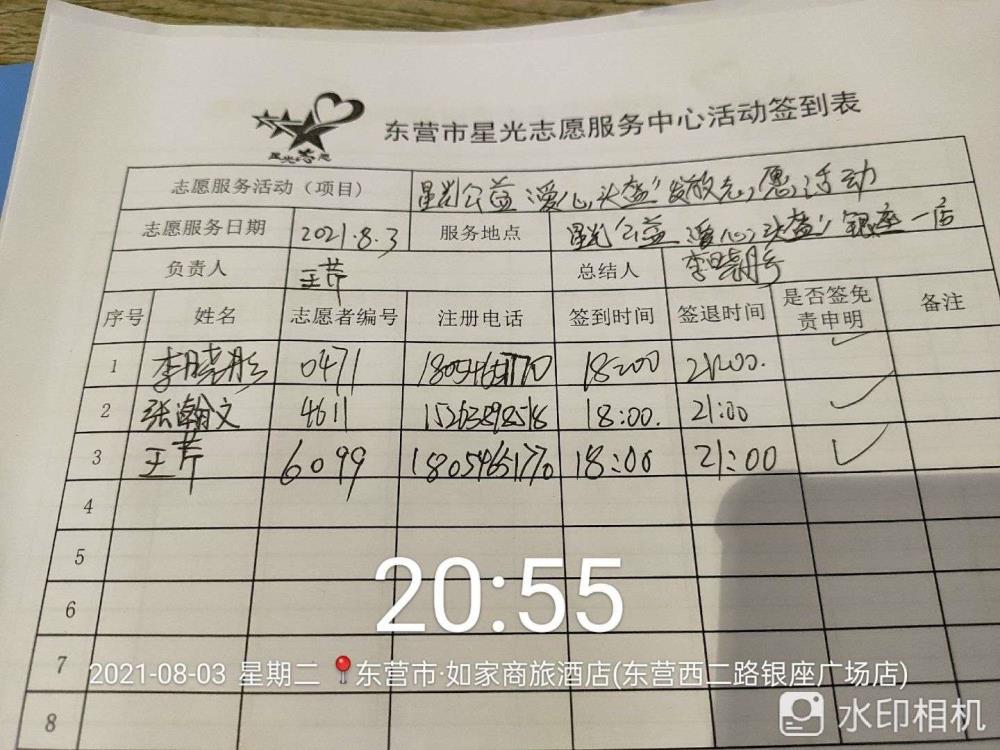 星光志愿
东营市星光志愿服务中心活动签到表
志愿服务活动（项目） 星光公益"爱心头盔"发放志愿活动
志愿服务日期 2021.8.3 服务地点 星光公益"爱心头盔"银座一店
负责人 王芹 总结人 李晓彤
序号 姓名 志愿者编号 注册电话 签到时间 签退时间 是否签免责申明 备注
1 李晓彤 0471 18:00 21:00. ✓
2 张瀚文 4611 15263898518 18:00. 21:00 ✓
3 王芹 6099 18054651770 18:00 21:00 ✓
4
5
6
7
8
20:55
2021-08-03 星期二 东营市·如家商旅酒店(东营西二路银座广场店)
水印相机